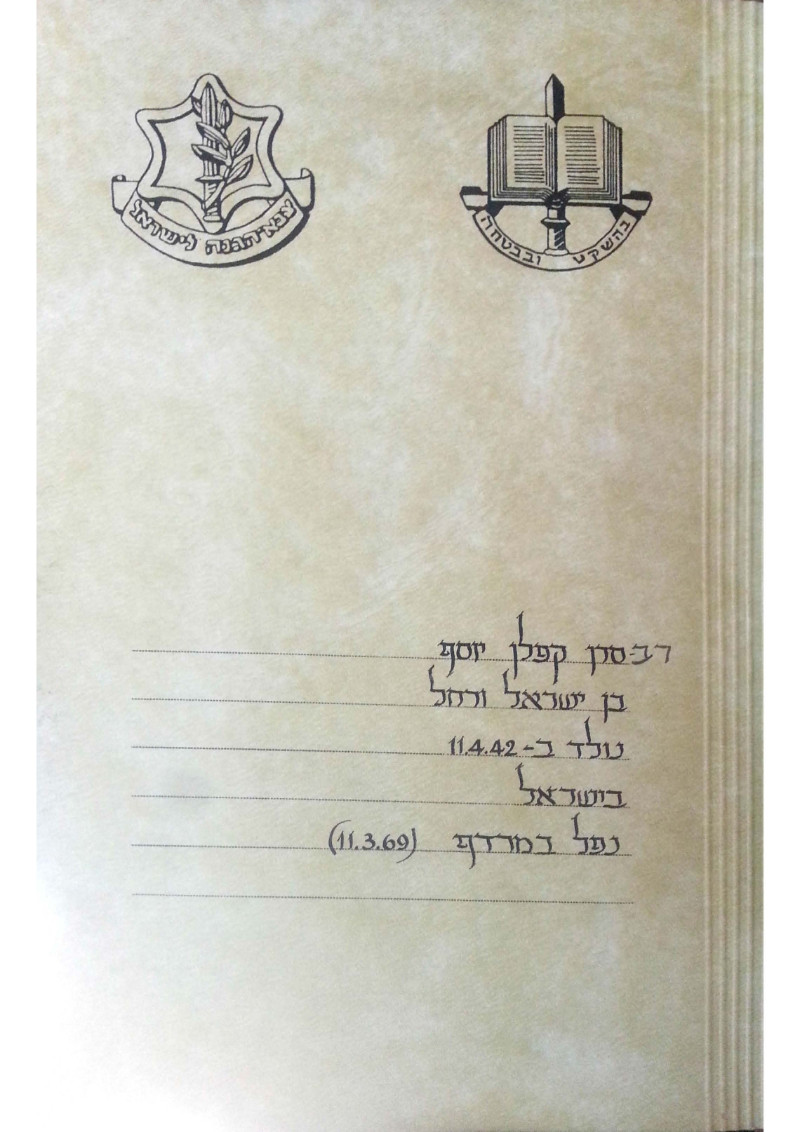 צבא הגנה לישראל
בהשקט ובבטחה
רב-סרן קפלן יוסף
בן ישראל ורחל
נולד ב-11.4.42
בישראל
נפל במרדף (11.3.69)